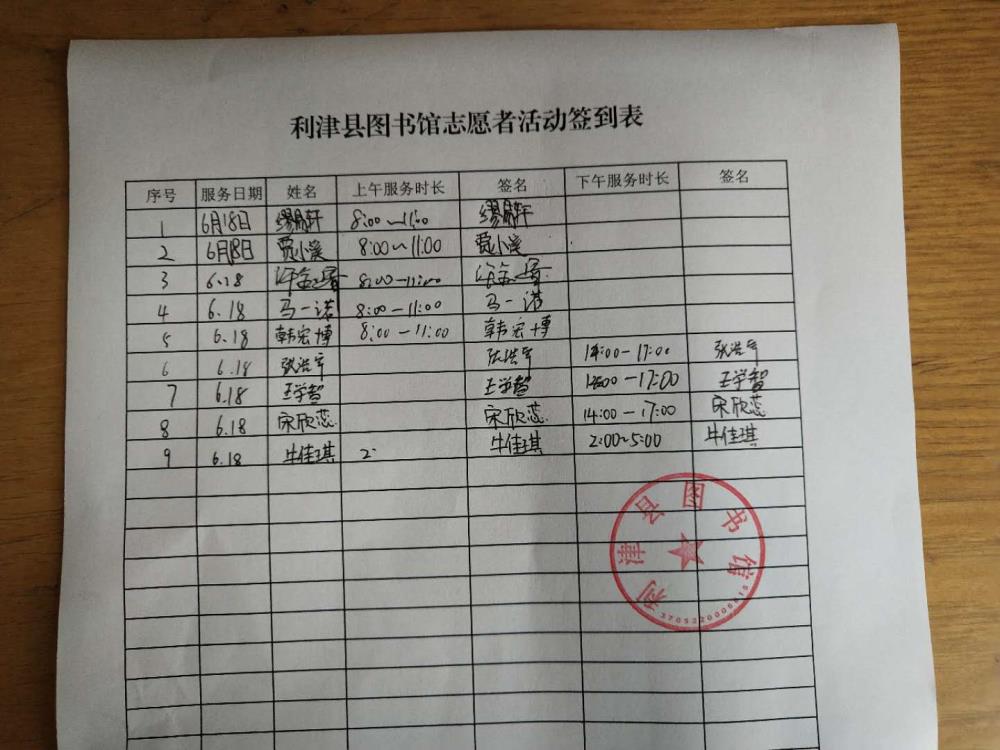 利津县图书馆志愿者活动签到表
序号 服务日期 姓名 上午服务时长 签名 下午服务时长 签名
1 6月18日 8:00~11:00
2 6月18日 贾小溪 8:00~11:00 贾小溪
3 6.18 8:00-11:00
4 6.18 马一诺 8:00-11:00 马一诺
5 6.18 韩宏博 8:00-11:00 韩宏博
6 6.18 张浩宇 张浩宇 14:00-17:00 张浩宇
7 6.18 王学智 王学智 14:00-17:00 王学智
8 6.18 宋欣蕊 宋欣蕊 14:00-17:00 宋欣蕊
9 6.18 牛佳琪 2: 牛佳琪 2:00~5:00 牛佳琪
利津县图书馆